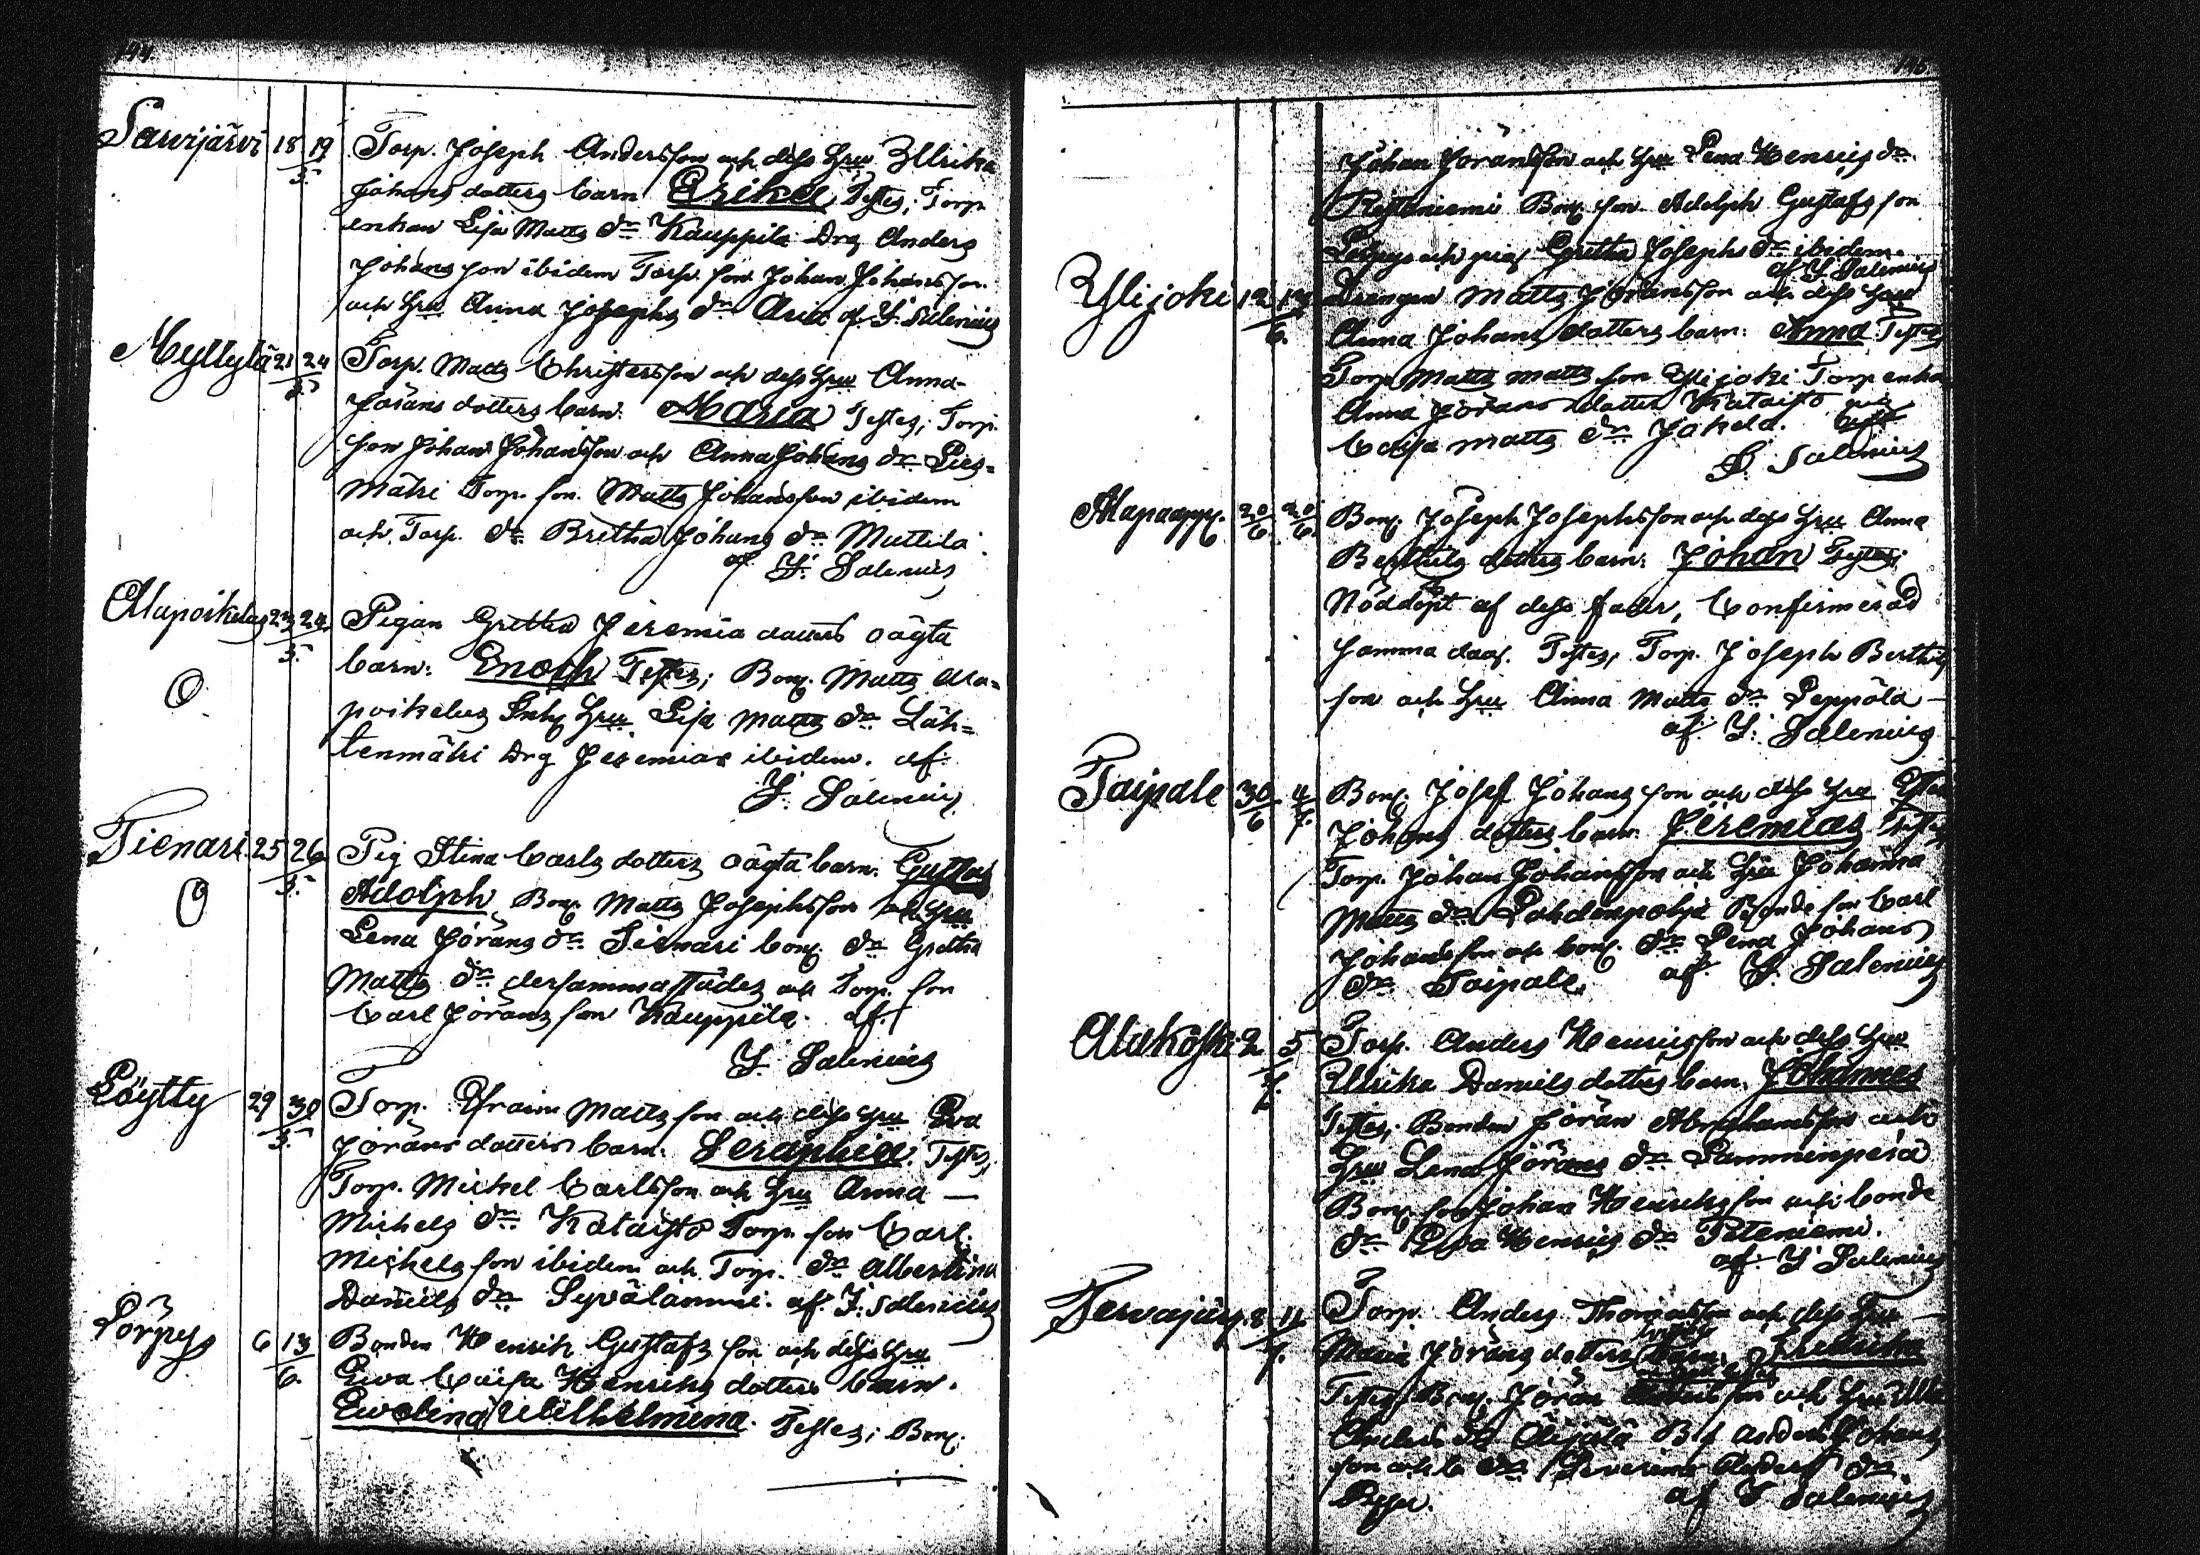 194.
Sarvijärvi 18 19 Torp. Joseph Andersson och dess hru Ullrika
5. Johans dotters barn Erika, Testes; Torp
enkan Lisa Matts dr Kauppila Drg Anders
Johans son ibidem Torp. son Johan Johansson
och hru Anna Josephs dr af Y. Salenius
Myllylä 21 24 Torp. Matts Christersson och dess hru Anna
5. Jörans dotters barn. Maria Testes; Torp.
son Johan Johansson och Anna Johans dr
mäki Torp. son. Matts Johansson ibidem
och Torp. dr Bretha Johans dr Mattila.
af Y. Salenius
Alapoikelus 23 24 Pigan Gretha Jeremia dotters oägta
5. barn: Enoch Testes; Bon. Matts Ala-
O poikelus hru Lisa Matts dr Läh-
tenmäki Drg Jeremias ibidem. af
Y. Salenius
Tienari 25 26 Pig Stina Carls dotters oägta barn. Gustaf
5. Adolph Bon. Matts Josephsson och hru
O Lena Jörans dr Tienari bon. dr Gretha
Matts dr dersammastädes och Torp. son
Carl Jörans son Kauppila. af
Y. Salenius
Löytty 29 30 Torp. Efraim Matts son och dess hru Eva
5. Jörans dotters barn. Seraphia. Testes;
Torp. Mickel Carlsson och hru Anna —
Michels dr Kataisto Torp. son Carl
Michels son ibidem och Torp. dr Albertina
Daniels dr Syvälammi. af Y. Salenius
Lörpys 6 13 Bonden Henrik Gustafs son och dess hru
6. Eva Caisa Henriks dotters barn.
Evelina Wilhelmina. Testes; Bon.
Johan Jöransson och hru Lena Henrics dr
Bon. son Adolph Gustafs son
och pig Gretha Josephs dr ibidem.
af Y. Salenius
Ylijoki 12 13 Drengen Matts Jöransson och dess hru
6. Anna Johans dotters barn: Anna Testes
Torp Matts Matts son Ylijoki Torp enka
Anna Jörans dotter Kataisto pig
Caisa Matts dr Jokela. af
Y. Salenius
Alapaapp. 20 20 Bon. Joseph Josephsson och dess hru Anna
6. 6. Berthils dotters barn: Johan Testes;
Nöddöpt af dess fader, Confirmerad
samma dag. Testes; Torp. Joseph Berthils
son och hru Anna Matts dr Leppälä —
af Y. Salenius
Taipale 30 4 Bon. Josef Johans son och dess hru
6 7. Johans dotters barn. Jeremias Testes
Torp. Johan Johansson och hru Johanna
Matts dr Lohdenpohja Bonde son Carl
Johansson och bon. dr Lena Johans
dr Taipale. af Y. Salenius
Alakoski 2 5 Torp. Anders Henricsson och dess hru
7. Ullrika Daniels dotters barn. Johannes
Testes; Bonden Jöran Abrahamsson och
hru Lena Jörans dr Lamminperä
Bon. son Johan Henricsson och bonde
dr Eva Henrics dr Peteniemi.
af Y Salenius
Tervajärv. 8 11 Torp. Anders Thomasson och dess hru
7. Maria Jörans dotters barn. Fredrika
Testes; Bon. Jöran son och hru
Anders dr Alajala B. s Anders Johans
son och b dr Severina Anders dr
af Y Salenius